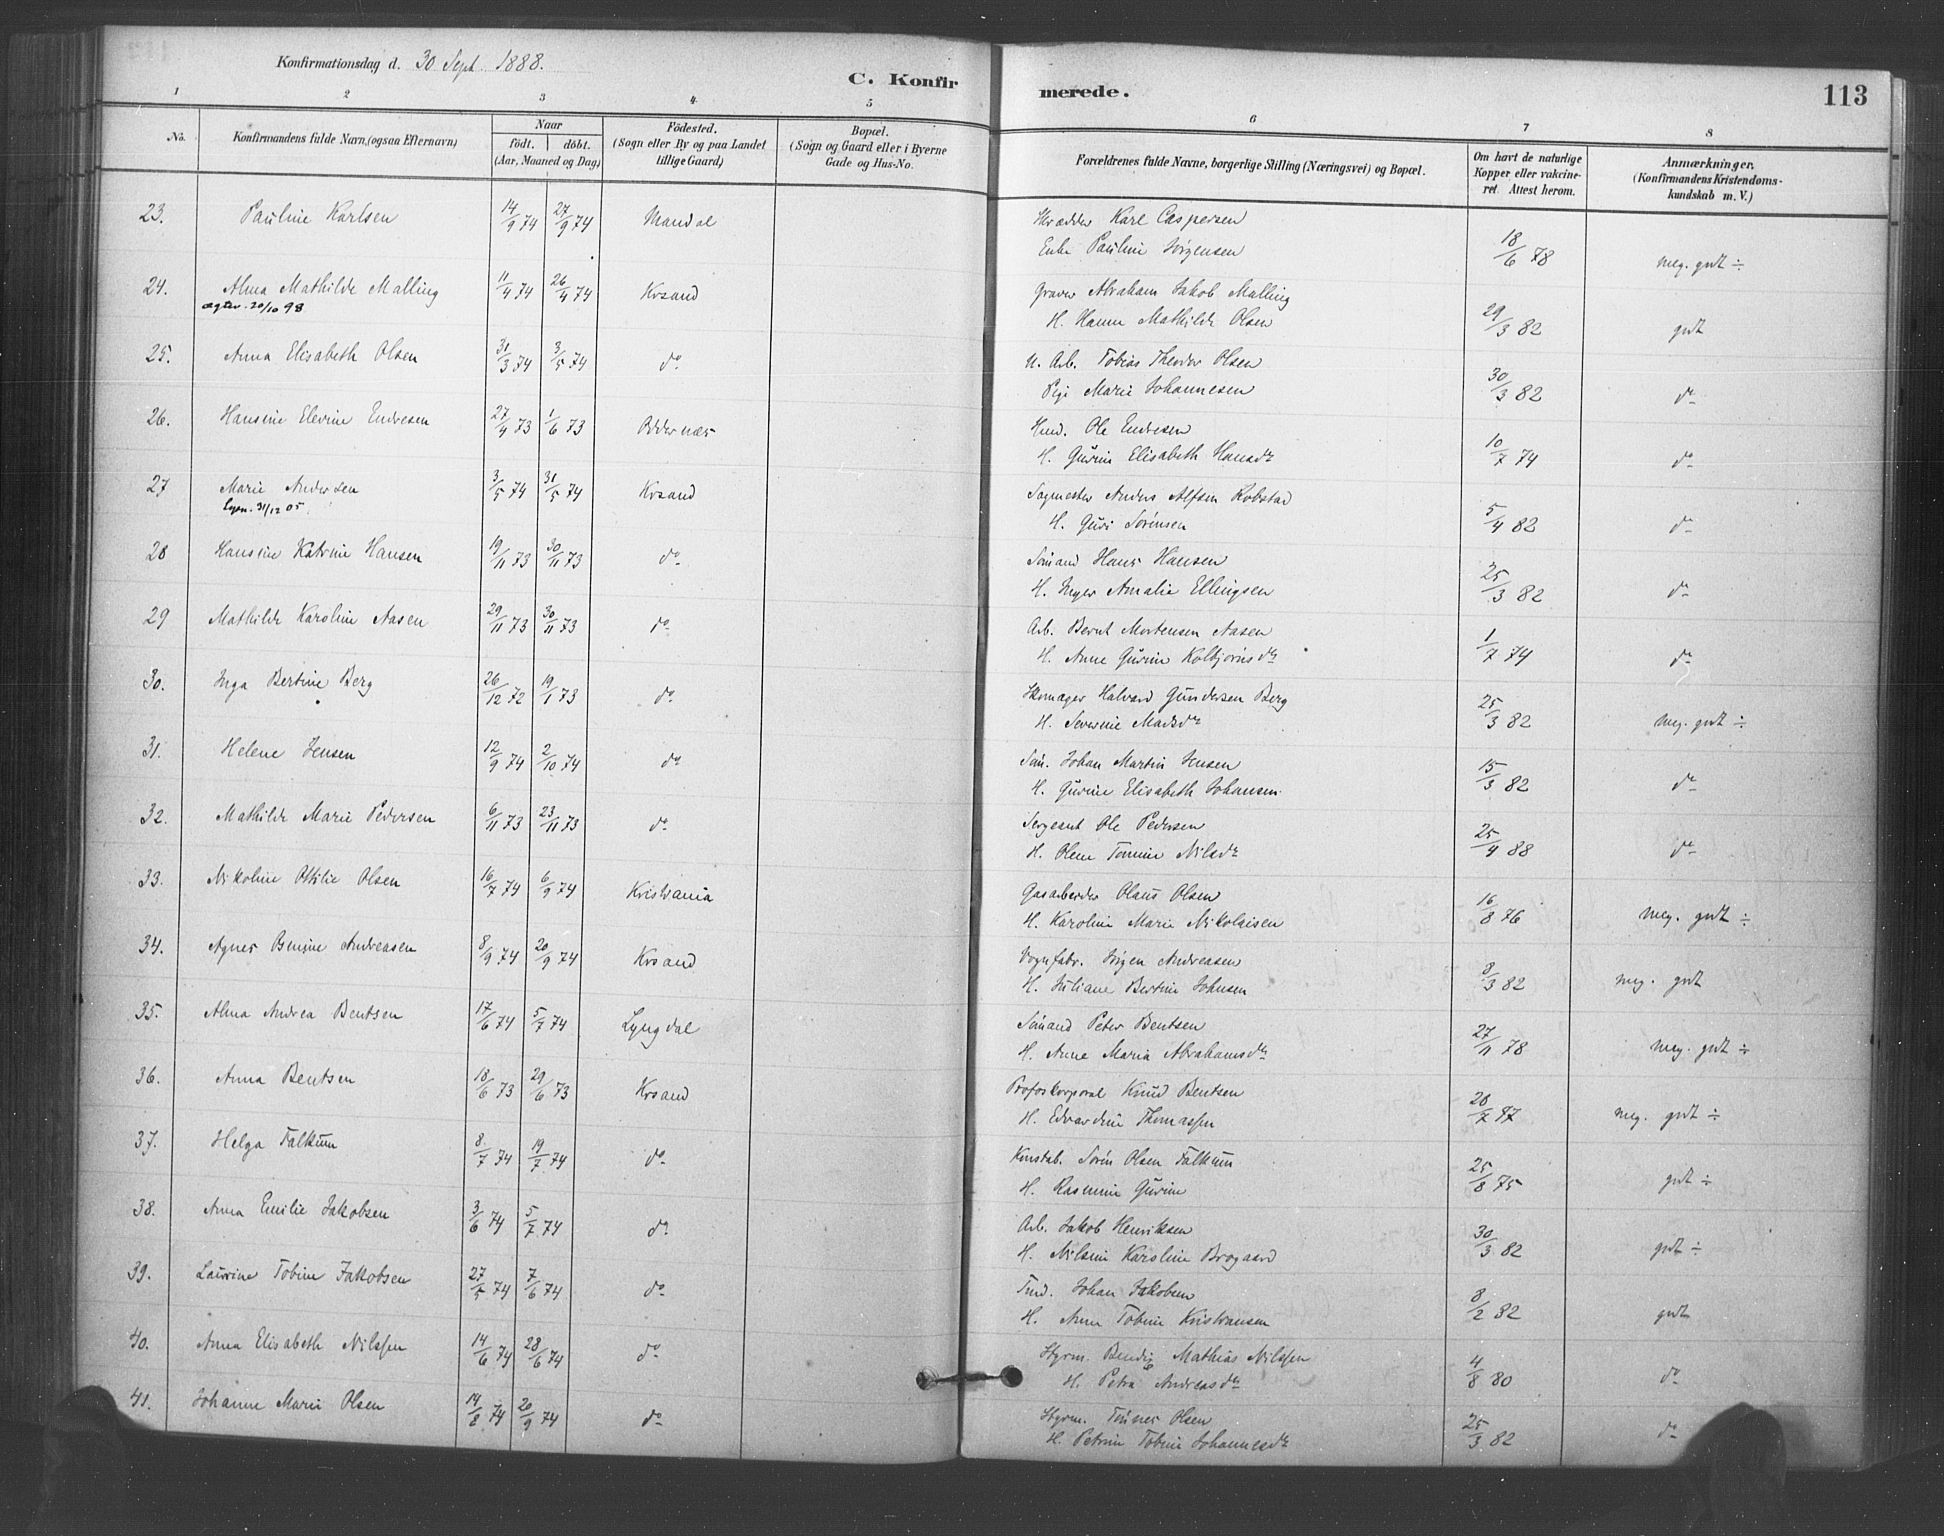 Konfirmationsdag d. 30 Sept. 1888.
C. Konfirmerede.
113
1 2 3 4 5 6 7 8
No.
Konfirmandens fulde Navn, (ogsaa Efternavn)
Naar
födt. döbt.
(Aar, Maaned og Dag)
Födested.
(Sogn eller By og paa Landet
tillige Gaard)
Bopæl.
(Sogn og Gaard eller i Byerne
Gade og Hus-No.
Forældrenes fulde Navne, borgerlige Stilling (Næringsvei) og Bopæl.
Om havt de naturlige
Kopper eller vakcine-
ret. Attest herom.
Anmærkninger.
(Konfirmandens Kristendoms-
kundskab m. V.)
23. Pauline Karlsen 14/9 74 27/9 74 Mandal Skrædder Karl Caspersen
Enke Pauline Jörgensen 18/6 78 meg. godt ÷
24. Alma Mathilde Malling 11/4 74 26/4 74 Krsand Gravør Abraham Jakob Malling
ægtev. 20/10 98 H. Hanne Mathilde Olsen 29/3 82 godt
25. Anna Elisabeth Olsen 31/3 74 3/5 74 do U. Arb. Tobias Theodor Olsen
Pige Marie Johannesen 30/3 82 do
26. Hansine Elevine Endresen 27/4 73 1/6 73 Oddernæs Hmd. Ole Endresen
H. Gurine Elisabeth Hansdr 10/7 74 do
27 Marie Andersen 3/5 74 31/5 74 Krsand Sagmester Anders Alfsen Robstad
31/12 05 H. Guri Sörensen 5/4 82 do
28 Hansine Katrine Hansen 19/11 73 30/11 73 do Sömand Hans Hansen
H. Inger Amalie Ellingsen 25/3 82 do
29 Mathilde Karoline Aasen 29/11 73 30/11 73 do Arb. Bernt Mortensen Aasen
H. Anne Gurine Kolbjörnsdr 1/7 74 do
30. Inga Bertine Berg 26/12 72 19/1 73 do Skomager Halvard Gundersen Berg
H. Severine Madsdr 25/3 82 meg. godt ÷
31. Helene Jensen 12/9 74 2/10 74 do Söm. Johan Martin Jensen
H. Gurine Elisabeth Johansen 15/3 82 do
32. Mathilde Marie Pedersen 6/11 73 23/11 73 do Sergeant Ole Pedersen
H. Olene Tomine Nilsdr 25/4 88 do
33. Nikoline Ottilie Olsen 16/7 74 6/9 74 Kristiania Gasarbeider Olaus Olsen
H. Karoline Marie Nikolaisen 16/8 76 meg. godt ÷
34. Agnes Benine Andreasen 8/9 74 20/9 74 Krsand Vognfabr. Jörgen Andreasen
H. Juliane Bertine Johnsen 8/3 82 meg. godt
35. Alma Andrea Bentsen 17/6 74 5/7 74 Lyngdal Sömand Peter Bentsen
H. Anne Maria Abrahamsdr 27/11 78 meg. godt ÷
36. Anna Bentsen 18/6 73 29/6 73 Krsand Profoskorporal Knud Bentsen
H. Edvardine Thomassen 28/7 87 meg. godt ÷
37. Helga Falkum 8/7 74 19/7 74 do Konstab. Sörin Olsen Falkum
H. Rasmine Gurine 25/8 75 godt ÷
38. Anna Emilie Jakobsen 3/6 74 5/7 74 do Arb. Jakob Henriksen
H. Nilsine Karoline Brogaard 30/3 82 godt ÷
39. Laurine Tobine Jakobsen 27/5 74 7/6 74 do Tmd. Johan Jakobsen
H. Anne Tobine Kristiansen 8/2 82 godt
40. Anna Elisabeth Nilssen 14/6 74 28/6 74 do Styrm. Bendix Mathias Nilssen
H. Petra Andreasdr 4/8 80 do
41. Johanne Marie Olsen 14/8 74 20/9 74 do Styrm. Tönnes Olsen
H. Petrine Tobine Johannesdr 25/3 82 do